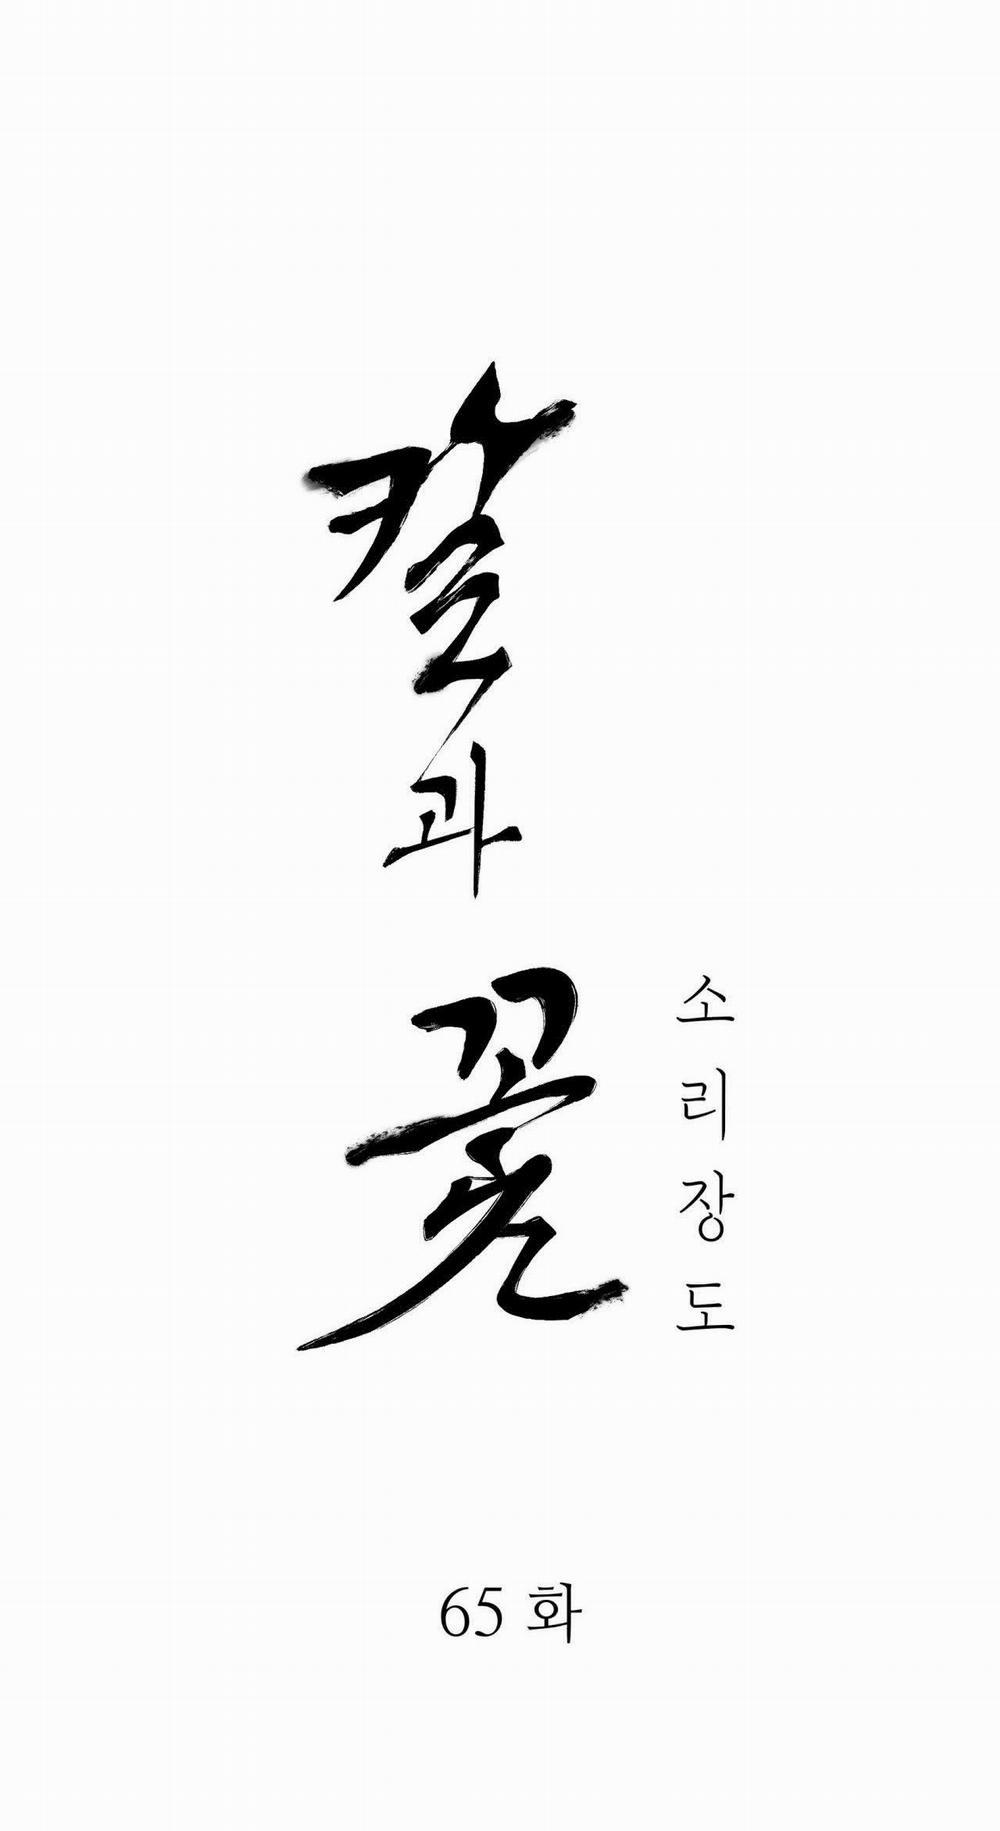 칼과 꽃
소리장도
65 화